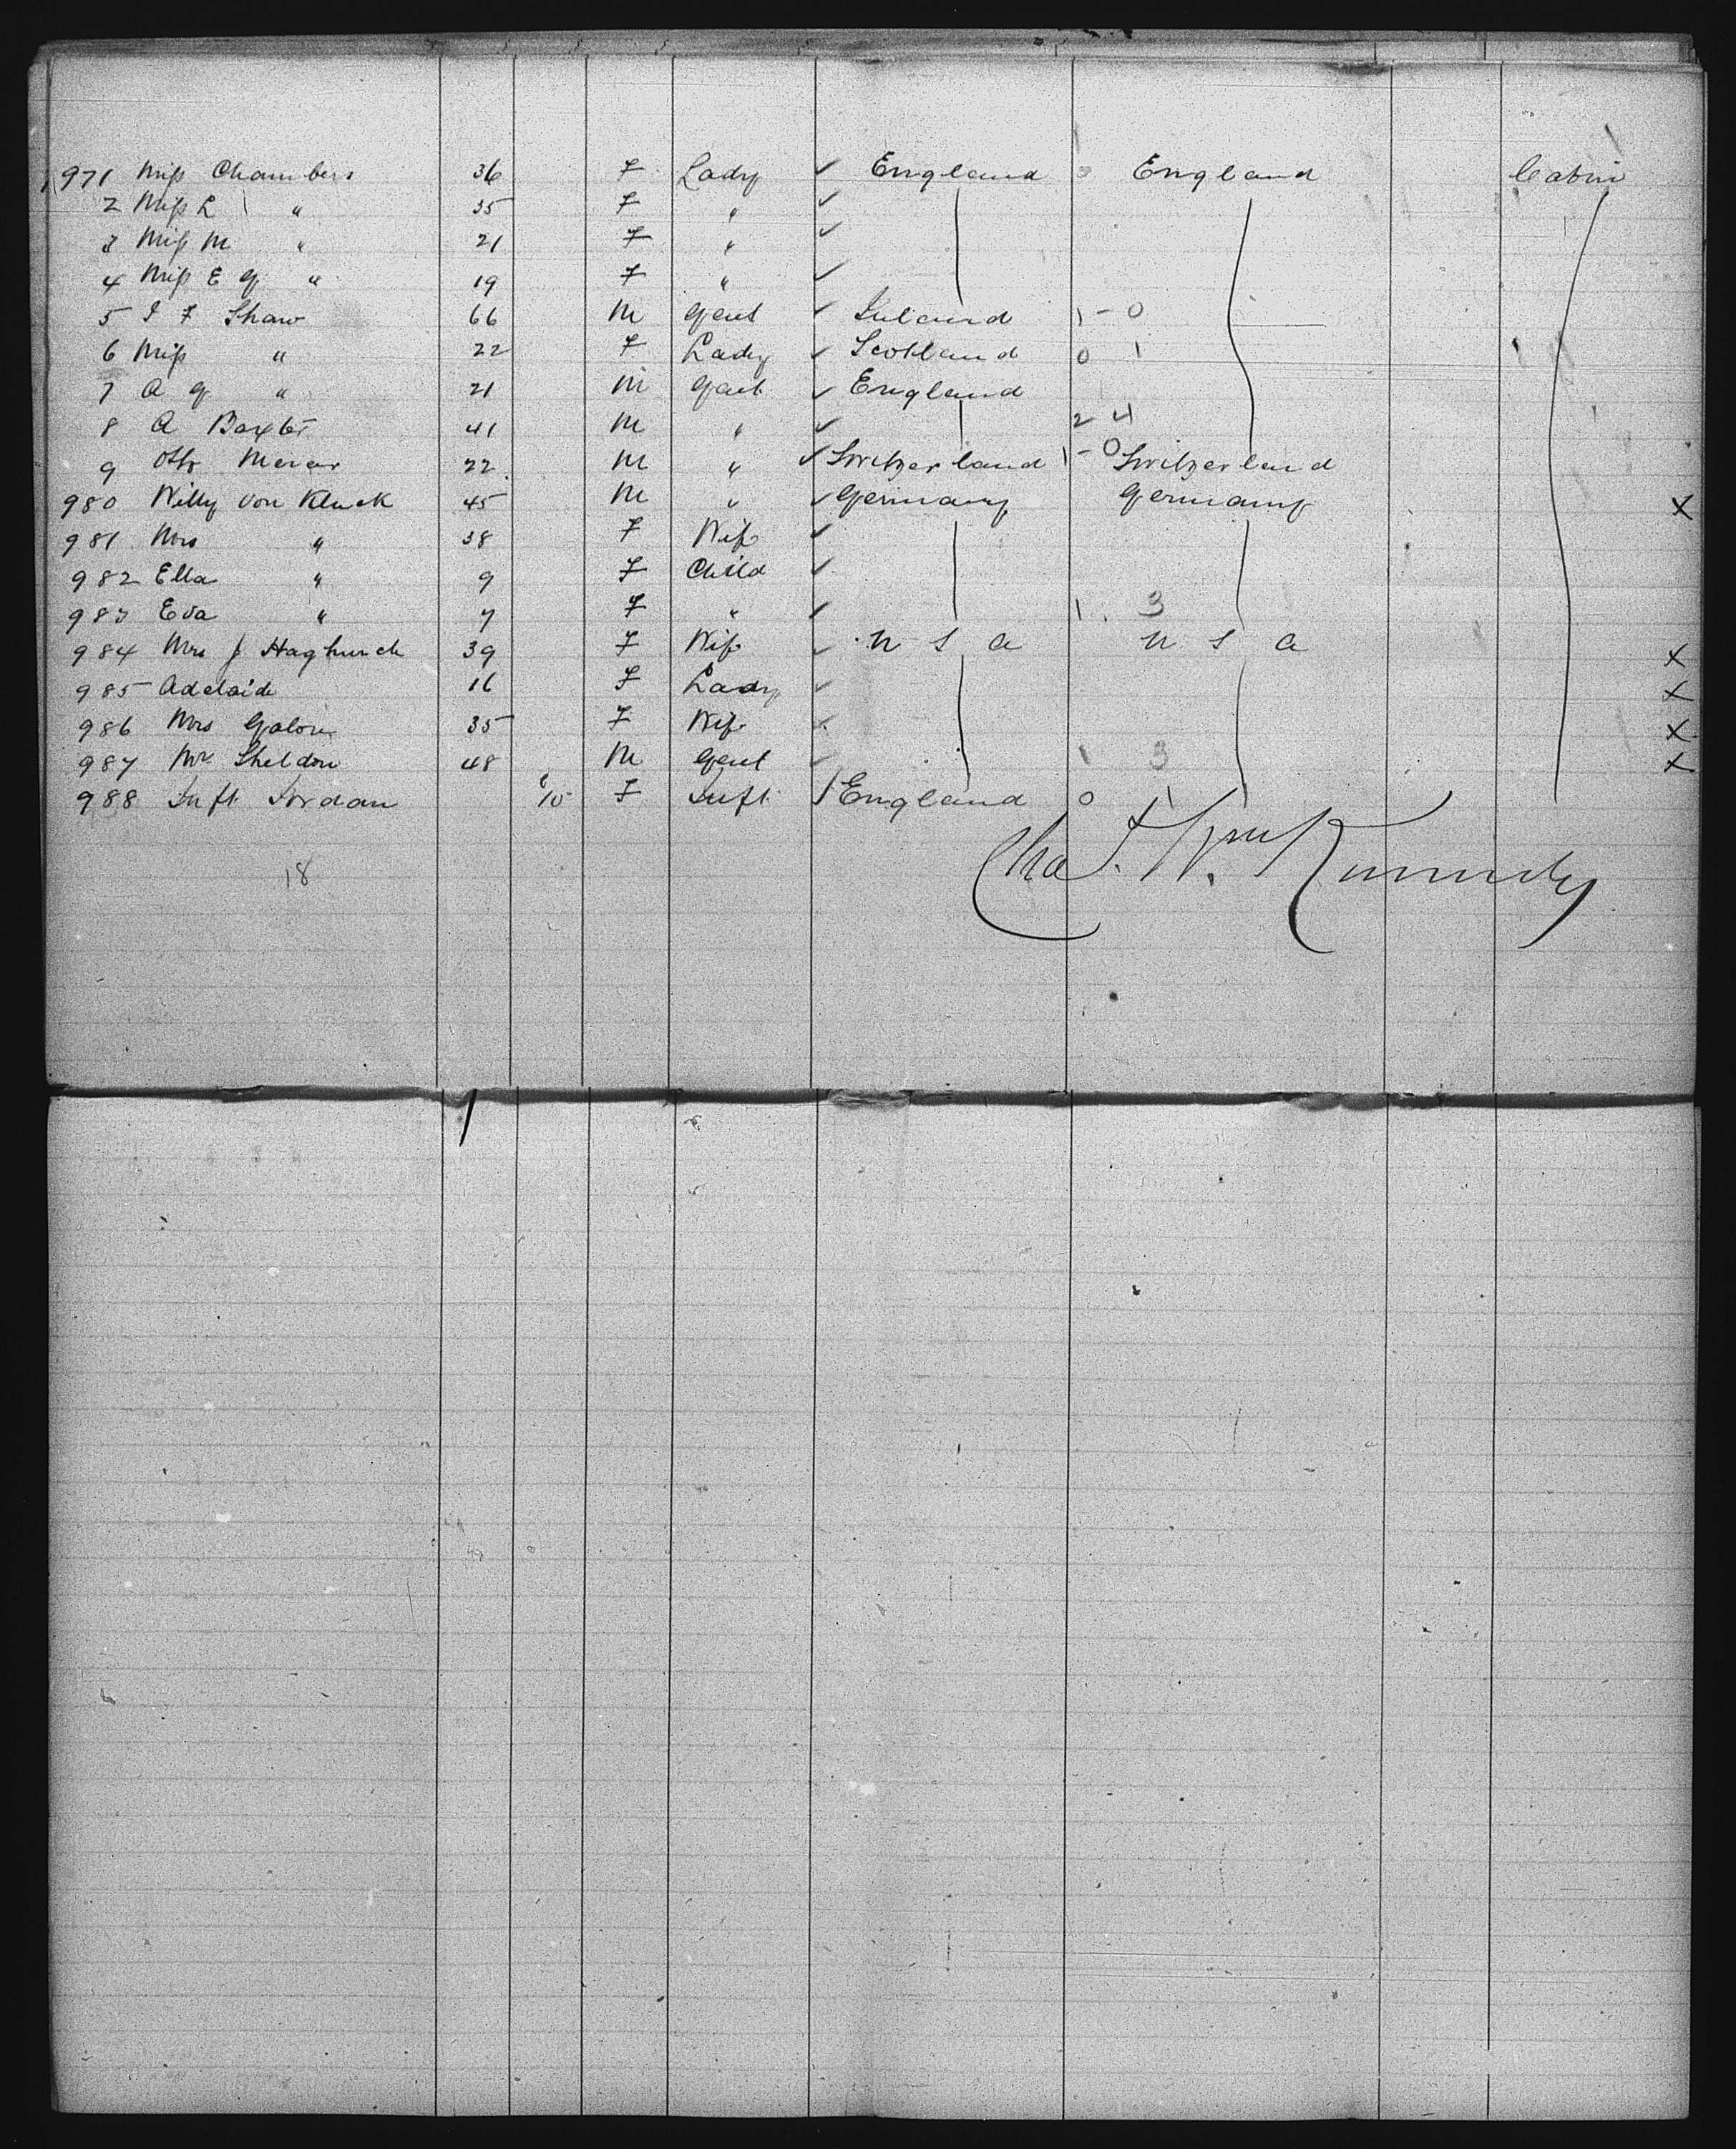 971 Miss Chambers 36 F Lady ✓ England England Cabin
2 Miss L " 35 F " ✓
3 Miss M " 21 F " ✓
4 Miss E G " 19 F " ✓
5 J F Shaw 66 M Gent ✓ Ireland 1 - 0
6 Miss " 22 F Lady ✓ Scotland 0 1
7 A G " 21 M Gent ✓ England
8 A Baxter 41 M " ✓ 2 4
9 Otto 22 M " ✓ Switzerland 1 - 0 Switzerland
980 Willy von Kluck 45 M " ✓ Germany Germany X
981 Mrs " 38 F Wife ✓
982 Ella " 9 F Child ✓
983 Eva " 7 F " ✓ 1 3
984 Mrs J 39 F Wife ✓ U S A U S A X
985 Adelaide 16 F Lady ✓ X
986 Mrs 35 F Wife X
987 Mr Sheldon 48 M Gent ✓ 1 3 X
988 Inft Jordan 10 F Inft England 0 1
Chas. Wm Kennedy
18